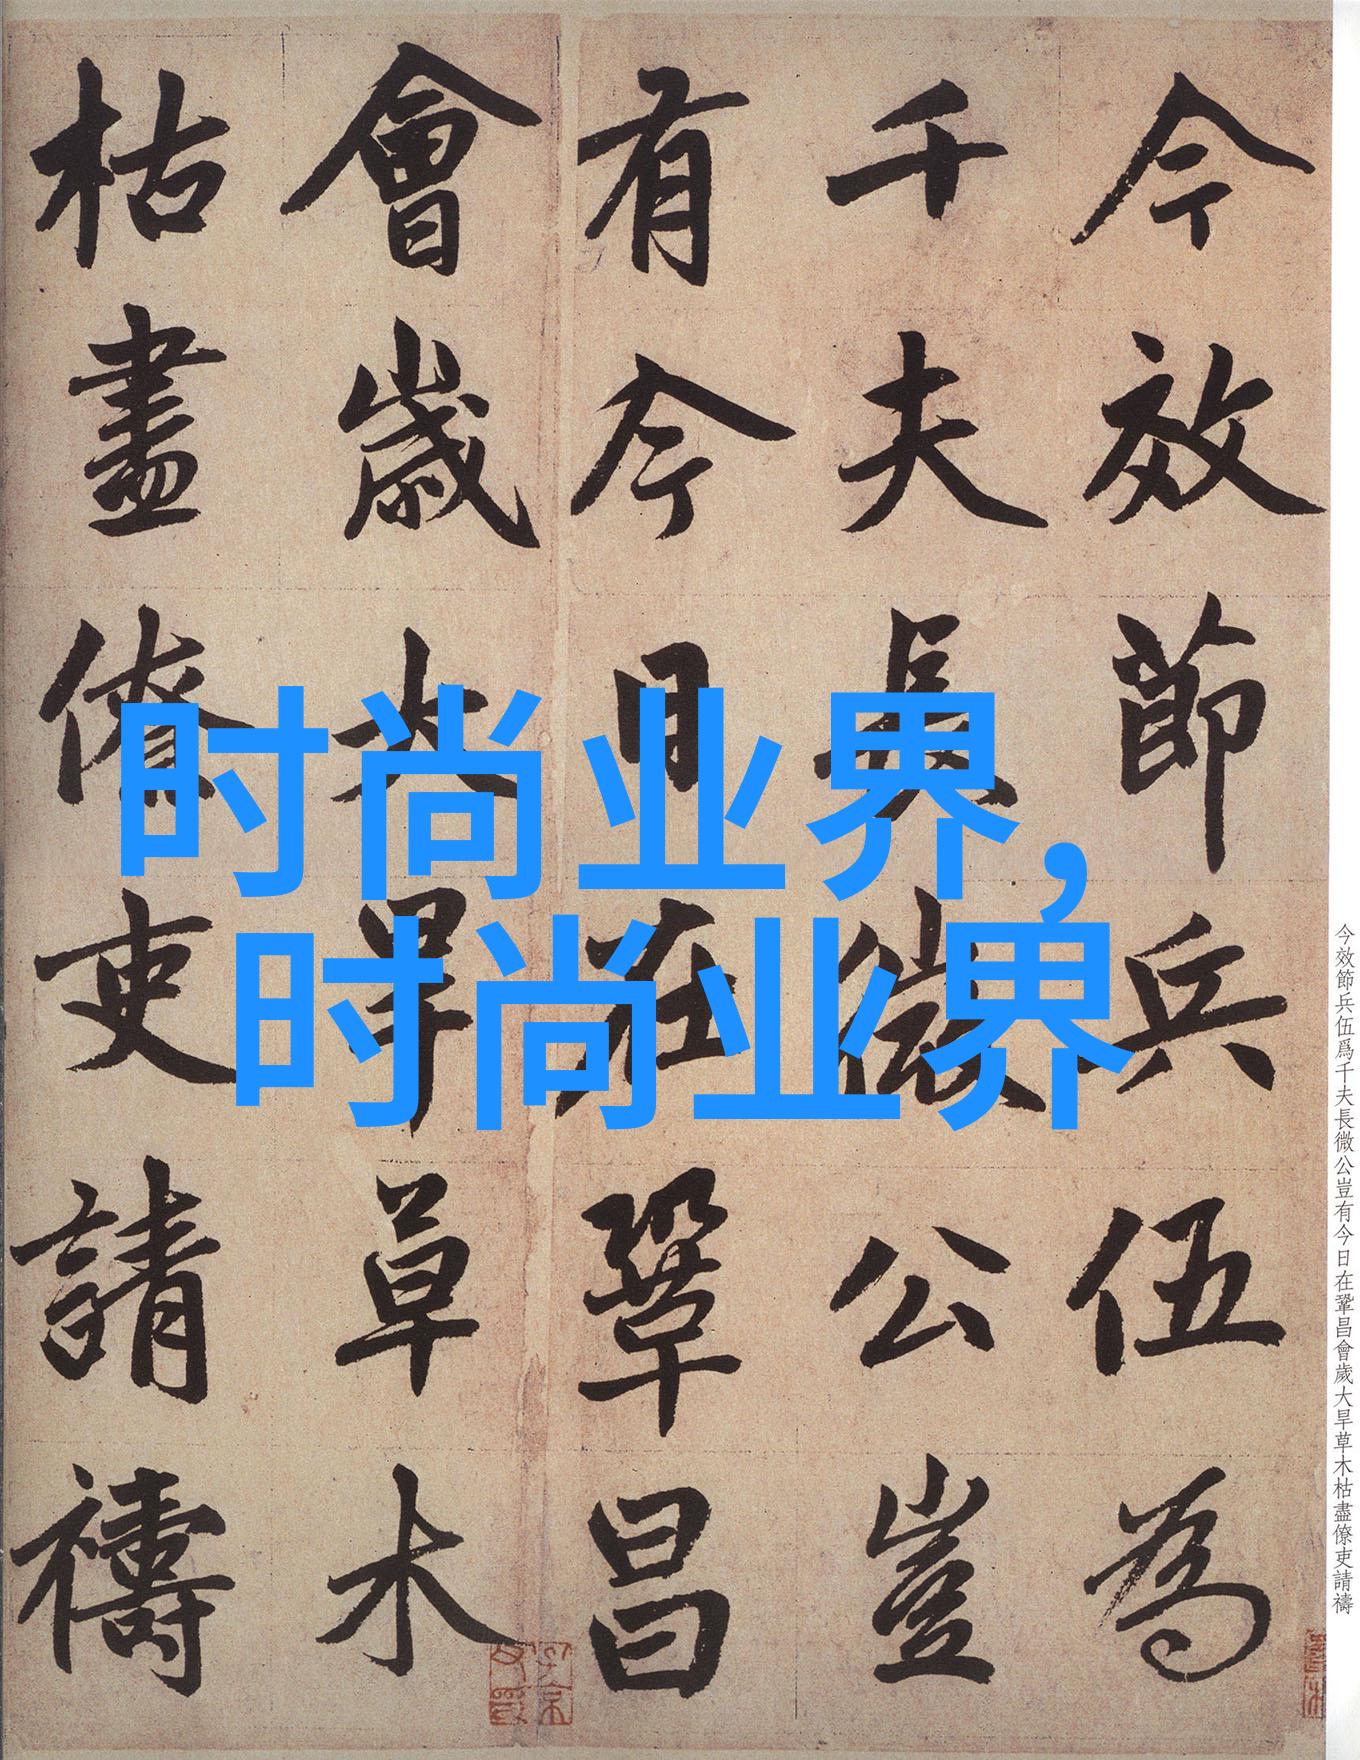 今效節兵伍為
千夫長微公豈
有今日在鞏昌
會歲大旱草木
枯盡僚吏請禱
时尚业界,
时尚业界
今效節兵伍爲千夫長微公豈有今日在鞏昌會歲大旱草木枯盡僚吏請禱